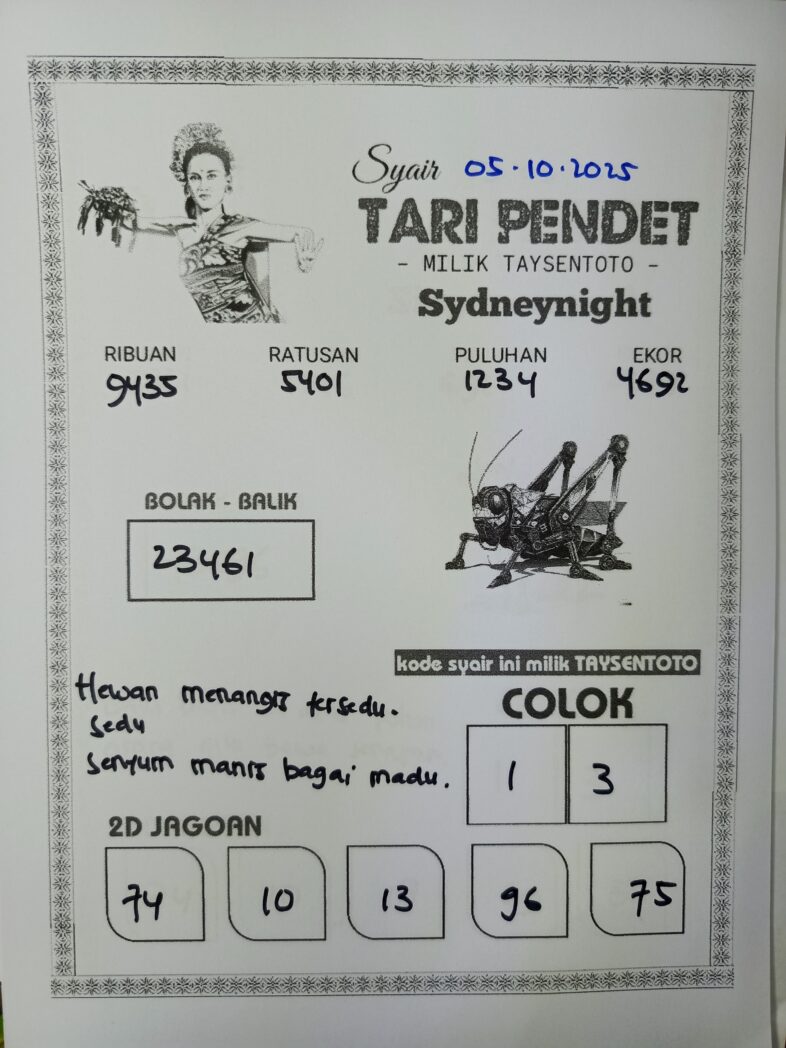 Syair 05.10.2025
TARI PENDET
- MILIK TAYSENTOTO -
Sydneynight
RIBUAN RATUSAN PULUHAN EKOR
9435 5401 1234 4692
BOLAK - BALIK
23461
kode syair ini milik TAYSENTOTO
Hewan menangis tersedu.
sedu
Senyum manis bagai madu.
COLOK
1 3
2D JAGOAN
74 10 13 96 75